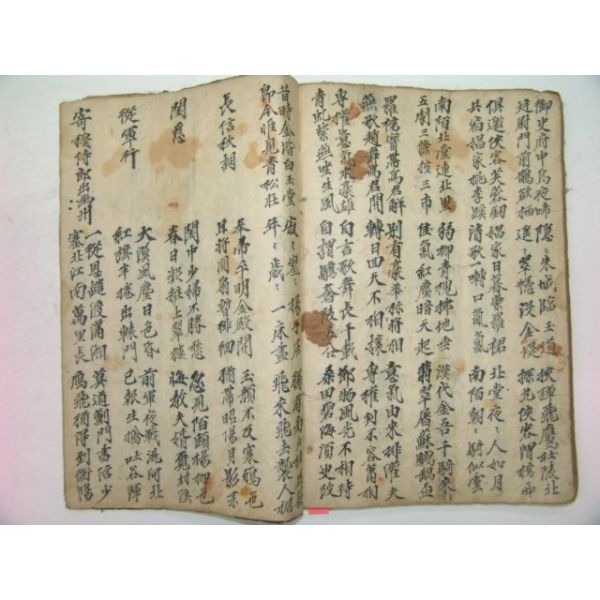 御史府中烏夜啼 隱〻朱城臨玉道 挾彈飛鷹杜陵北
廷尉門前鵲欲栖 遙〻翠幰沒金堤 探丸俠客渭橋西
俱邀俠客芙蓉劍 娼家日暮紫羅裙 北堂夜〻人如月
共宿娼家桃李蹊 清歌一囀口氛氳 南陌朝〻騎似雲
南陌北堂連北里 弱柳青槐拂地垂 漢代金吾千騎來
五劇三條控三市 佳氣紅塵暗天起 翡翠屠蘇鸚鵡盃
羅襦寶帶爲君解 別有豪華称將相 意氣由來排灌夫
燕歌趙舞爲君開 轉日回天不相讓 專權判不容蕭相
專權意氣本豪雄 自古歌舞長千載 節物風光不相待
青虬紫燕坐生風 自謂驕奢凌五公 桑田碧海須臾改
昔時金階白玉堂 寂〻寥〻楊子居 獨有南山桂花發
即今惟見青松在 年〻歲〻一床書 飛來飛去襲人裾
長信秋詞 奉帚平明金殿開 玉顏不及寒鴉色
且將團扇暫徘徊 猶帶昭陽日影來
閨怨 閨中少婦不勝愁 忽見陌頭楊柳色
春日凝粧上翠樓 悔教夫婿覓封侯
從軍行 大漠風塵日色昏 前軍夜戰洮河北
紅旗半捲出轅門 已報生擒吐谷渾
寄穆侍郎出幽州 一從恩譴渡瀟湘 莫道薊門書信少
塞北江南萬里長 鴈飛猶得到衡陽